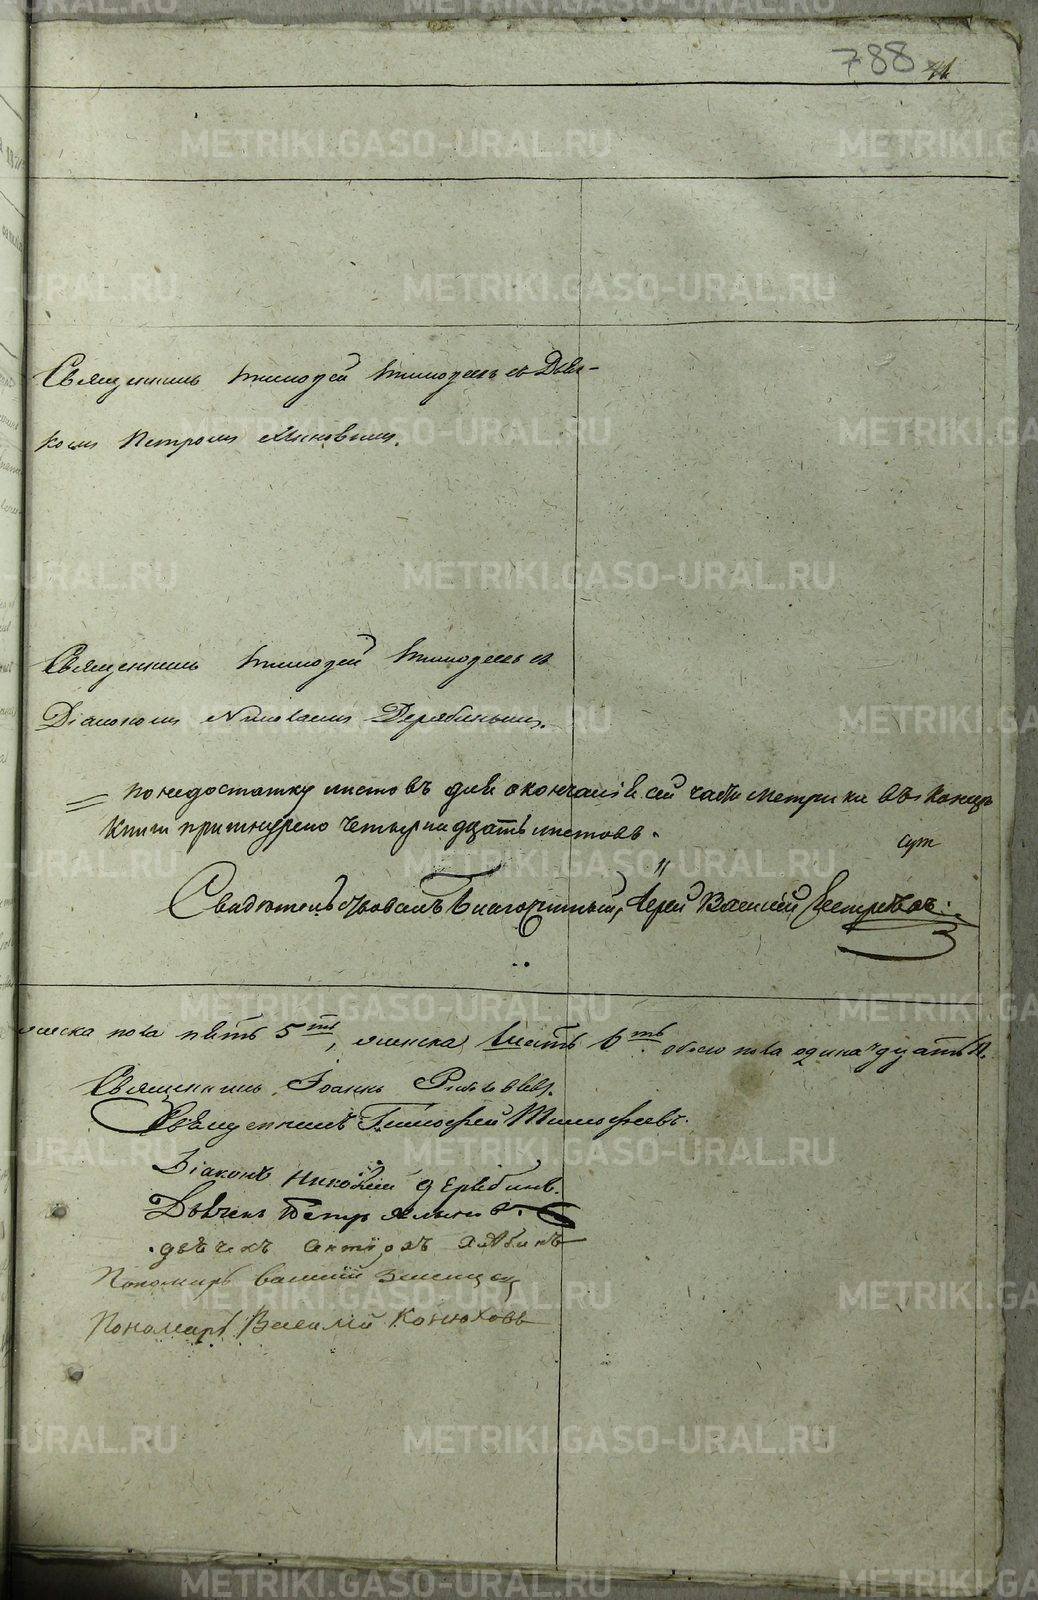 788
Священникъ Тимофей Тимофеевъ съ Дьяч-
комъ Петромъ
Священникъ Тимофей Тимофеевъ съ
Діакономъ Николаемъ Дерябинымъ.
= по недостатку листовъ для окончанія сей части метрики въ конецъ
книги пришнурено четырнадцать листовъ.
Свидѣтельствовалъ Благочинный, Іерей Василий
мужска пола пять 5ть, женска шесть 6ть обоего пола одинадцать
Священникъ Іоаннъ
Священникъ Тимофей Тимофеевъ.
Діаконъ Николай Дерябинъ.
Дьячекъ Петръ
дьячекъ
Пономарь Василий
Пономарь Василий Конюховъ
METRIKI.GASO-URAL.RU